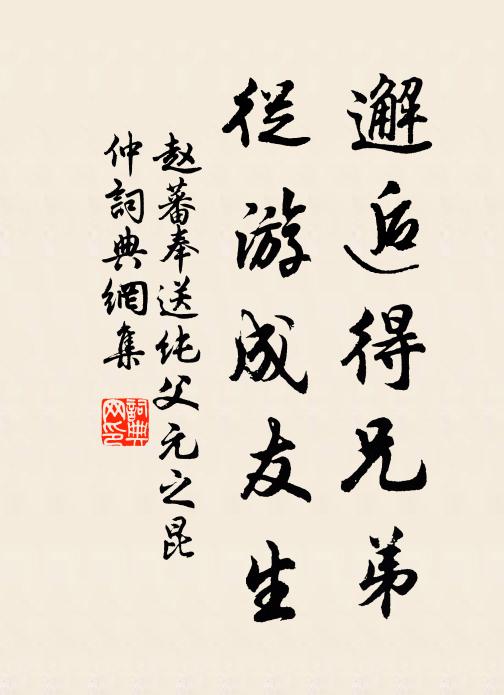 邂逅得兄弟
從游成友生
赵蕃奉送纯父元之昆
仲詞典網集
詞典网印